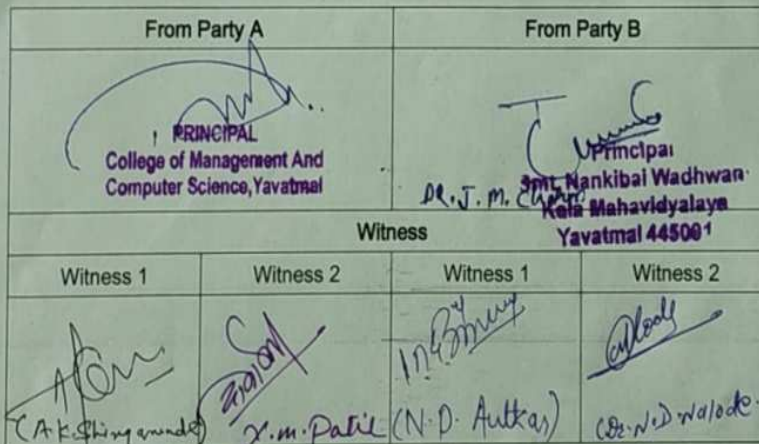 From Party A
From Party B
PRINCIPAL
College of Management And
Computer Science, Yavatmal
Principal
DR. J. M.
Smt. Nankibai Wadhwan
Kala Mahavidyalaya
Yavatmal 445001
Witness
Witness 1
Witness 2
Witness 1
Witness 2
(A.K.
X.M. Patil
(N.D. Autkar)
(Dr. N.D. Nalode.